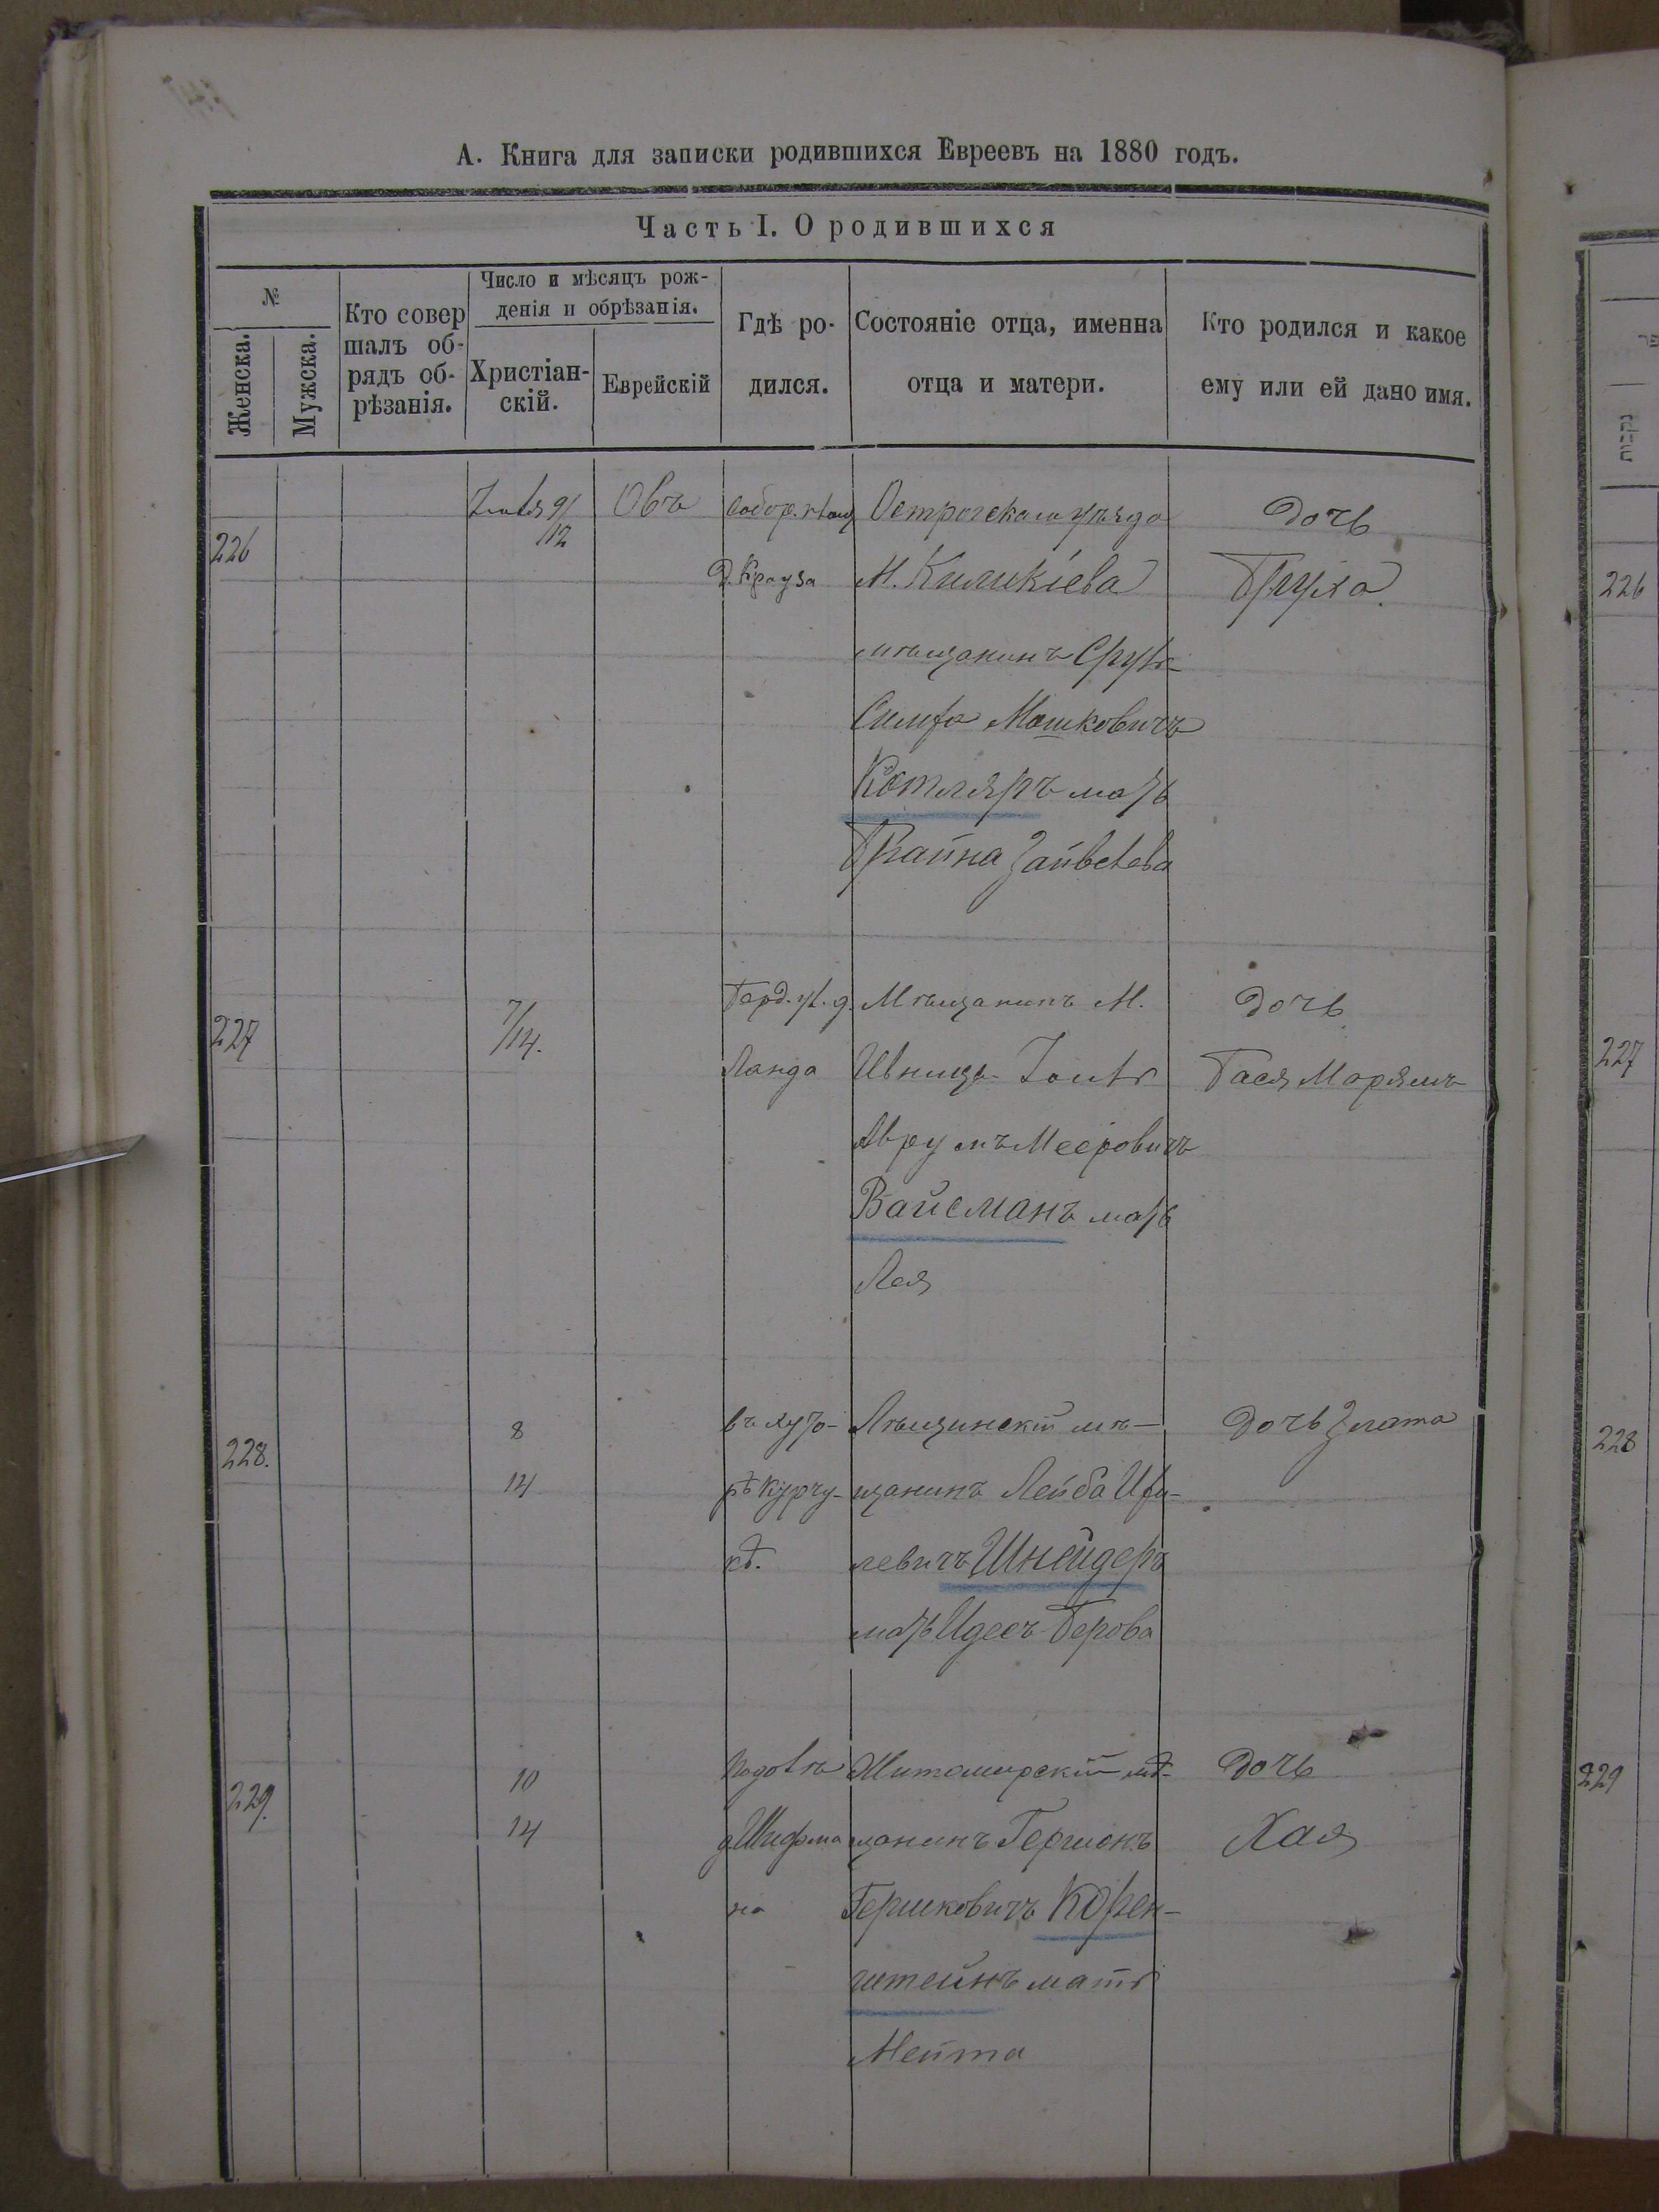 А. Книга для записки родившихся Евреевъ на 1880 годъ.
Часть I. О родившихся
№
Женска.
Мужска.
Кто совер
шалъ об-
рядъ об-
рѣзанія.
Число и мѣсяцъ рож-
денія и обрѣзанія.
Христіан-
скій.
Еврейскій
Гдѣ ро-
дился.
Состояніе отца, именна
отца и матери.
Кто родился и какое
ему или ей дано имя.
226
Іюля 9/
12
Овъ
д. Крауза
Острогскаго уѣзда
М. Киликіева
мѣщанинъ Сруль
Симха Мошковичъ
Котляръ мать
Брайна Зайвелева
дочь
Бруха
227
7/
14.
Берд. ул. д.
Ланда
Мѣщанинъ М.
Ивница
Аврумъ Мееровичъ
Вайсманъ мать
Лея
дочь
Бася Марямъ
228.
8
14
въ хуто-
рѣ Курчу-
кѣ.
Лѣщинскій мѣ-
щанинъ Лейба
левичъ Шнейдеръ
мать Идесъ Берова
дочь Злата
229.
10
14
Подолъ
д. Шифма
на
Житомирскій мѣ-
щанинъ Гершонъ
Гершковичъ Корен-
штейнъ мать
Мейта
дочь
Хая
226
227
228
229
נקבות